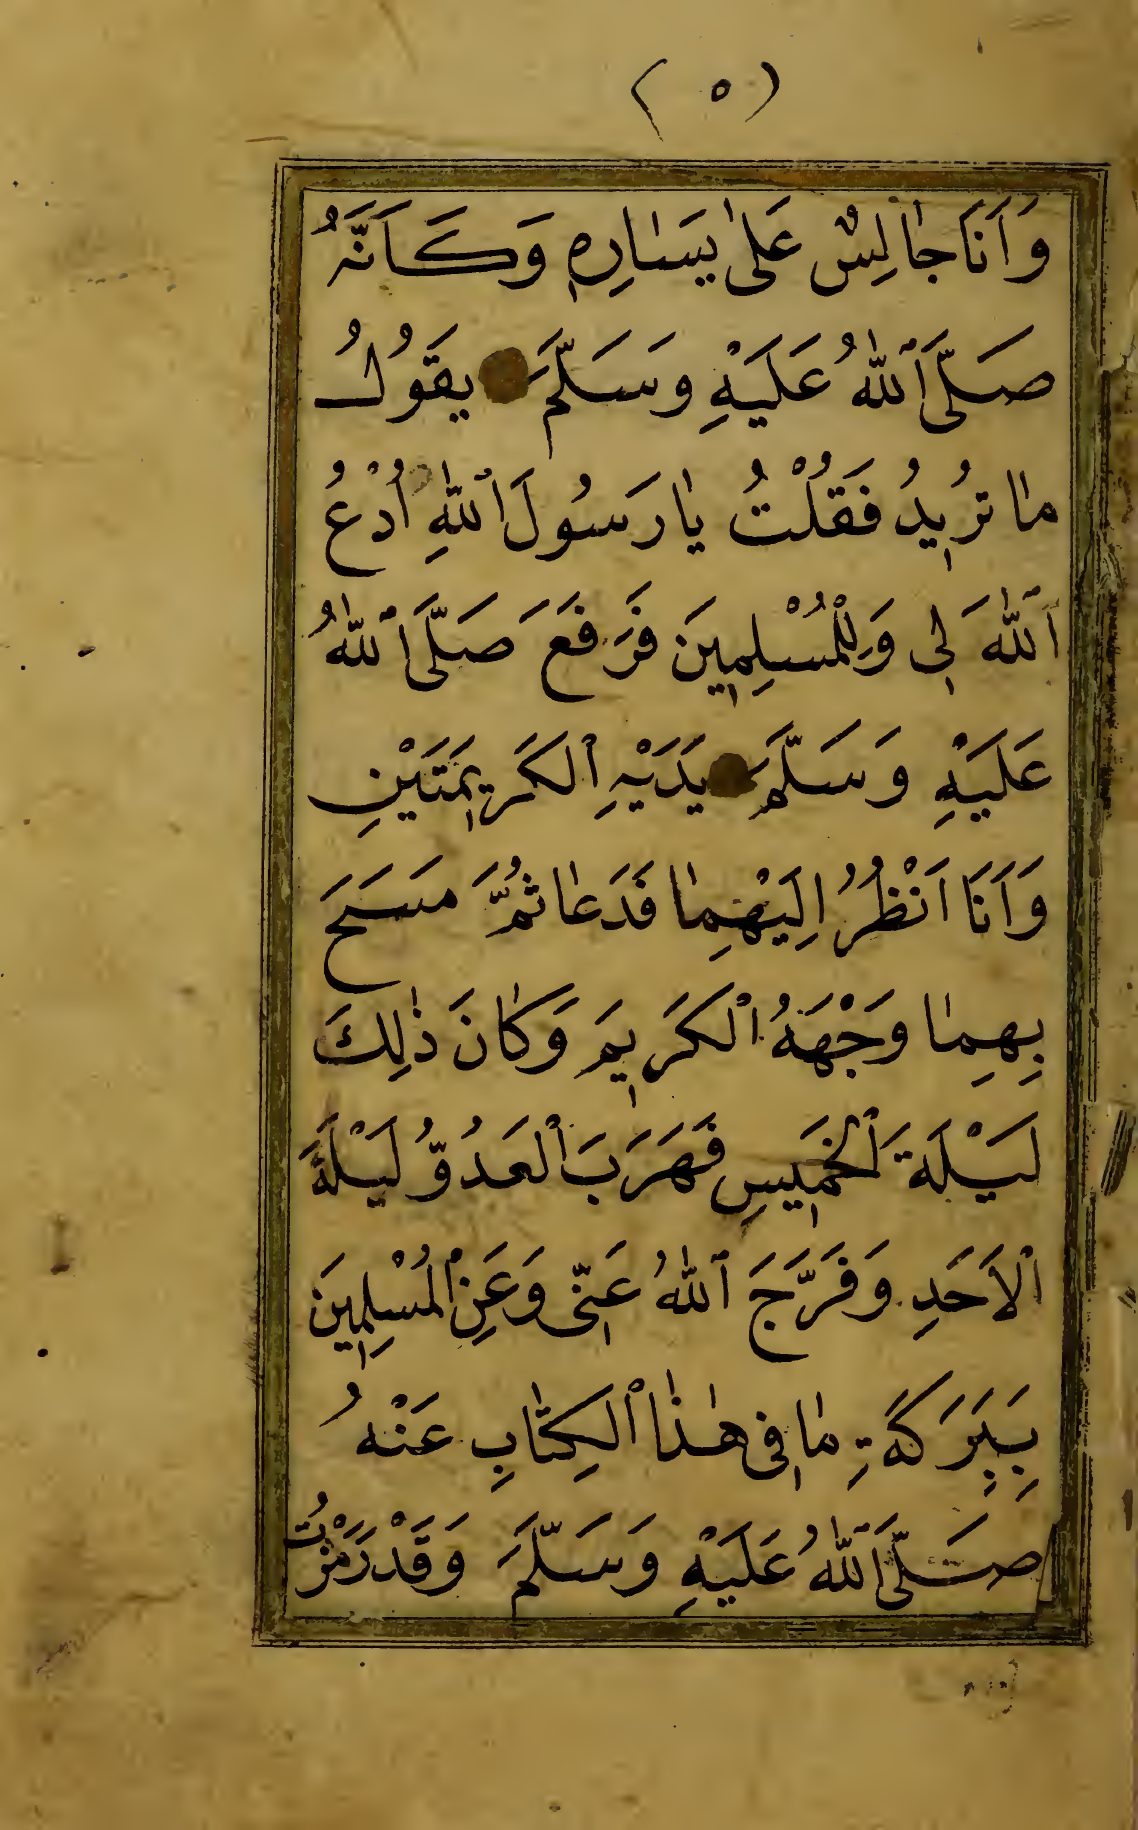 (٥)
وَاَنَا جٰالِسٌ عَلىٰ يَسٰارِهٖ وَكَاَنَّهُ
صَلَّى ٱللّٰهُ عَلَيْهِ وَسَلَّمَ يَقُولُ
مٰا تُرٖيدُ فَقُلْتُ يٰا رَسُولَ ٱللّٰهِ اُدْعُ
ٱللّٰهَ لٖى وَلِلْمُسْلِمٖينَ فَرَفَعَ صَلَّى ٱللّٰهُ
عَلَيْهِ وَسَلَّمَ يَدَيْهِ ٱلْكَرٖيمَتَيْنِ
وَاَنَا اَنْظُرُ اِلَيْهِمٰا فَدَعٰا ثُمَّ مَسَحَ
بِهِمٰا وَجْهَهُ ٱلْكَرٖيمَ وَكٰانَ ذٰلِكَ
لَيْلَةَ ٱلْخَمٖيسِ فَهَرَبَ ٱلْعَدُوُّ لَيْلَةَ
ٱلْاَحَدِ وَفَرَّجَ ٱللّٰهُ عَنّٖى وَعَنِ ٱلْمُسْلِمٖينَ
بِبَرَكَةِ مٰا فٖى هٰذَا ٱلْكِتٰابِ عَنْهُ
صَلَّى ٱللّٰهُ عَلَيْهِ وَسَلَّمَ وَقَدْ رَمَزْتُ